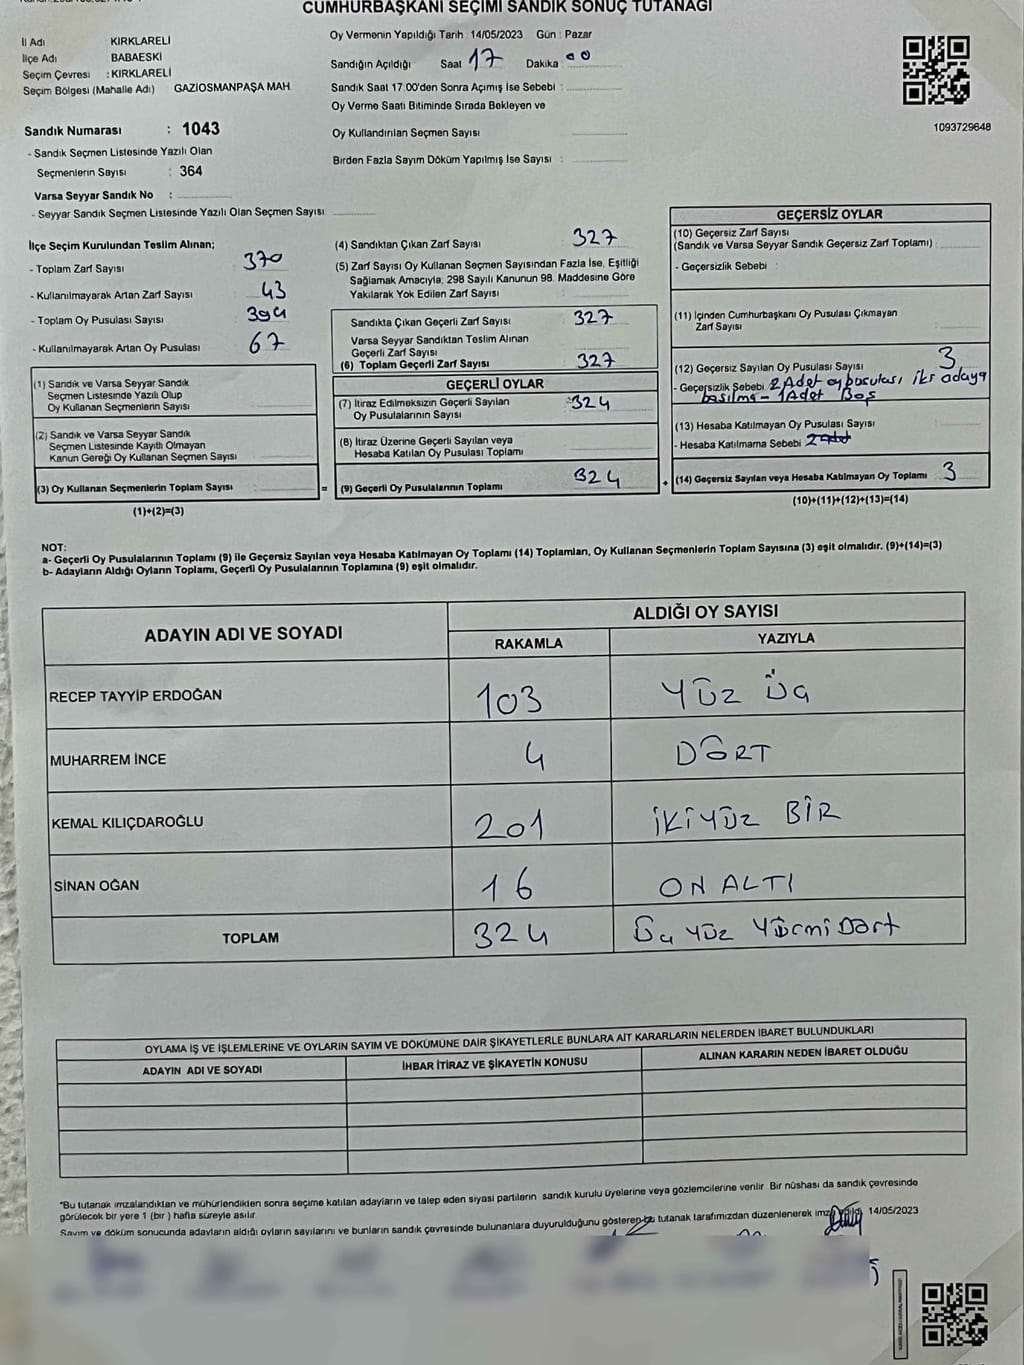 CUMHURBAŞKANI SEÇİMİ SANDIK SONUÇ TUTANAĞI
İl Adı : KIRKLARELİ
İlçe Adı : BABAESKİ
Seçim Çevresi : KIRKLARELİ
Seçim Bölgesi (Mahalle Adı) GAZİOSMANPAŞA MAH
Sandık Numarası : 1043
- Sandık Seçmen Listesinde Yazılı Olan
Seçmenlerin Sayısı : 364
Varsa Seyyar Sandık No :
- Seyyar Sandık Seçmen Listesinde Yazılı Olan Seçmen Sayısı
Oy Vermenin Yapıldığı Tarih : 14/05/2023 Gün : Pazar
Sandığın Açıldığı Saat 17 Dakika 00
Sandık Saat 17:00'den Sonra Açımış İse Sebebi :
Oy Verme Saati Bitiminde Sırada Bekleyen ve
Oy Kullandırılan Seçmen Sayısı
Birden Fazla Sayım Döküm Yapılmış İse Sayısı :
1093729648
İlçe Seçim Kurulundan Teslim Alınan;
- Toplam Zarf Sayısı : 370
- Kullanılmayarak Artan Zarf Sayısı : 43
- Toplam Oy Pusulası Sayısı : 394
- Kullanılmayarak Artan Oy Pusulası : 67
(1) Sandık ve Varsa Seyyar Sandık
Seçmen Listesinde Yazılı Olup
Oy Kullanan Seçmenlerin Sayısı
(2) Sandık ve Varsa Seyyar Sandık
Seçmen Listesinde Kayıtlı Olmayan
Kanun Gereği Oy Kullanan Seçmen Sayısı
(3) Oy Kullanan Seçmenlerin Toplam Sayısı =
(1)+(2)=(3)
(4) Sandıktan Çıkan Zarf Sayısı : 327
(5) Zarf Sayısı Oy Kullanan Seçmen Sayısından Fazla İse, Eşitliği
Sağlamak Amacıyla; 298 Sayılı Kanunun 98. Maddesine Göre
Yakılarak Yok Edilen Zarf Sayısı
Sandıkta Çıkan Geçerli Zarf Sayısı : 327
Varsa Seyyar Sandıktan Teslim Alınan
Geçerli Zarf Sayısı
(6) Toplam Geçerli Zarf Sayısı : 327
GEÇERLİ OYLAR
(7) İtiraz Edilmeksizin Geçerli Sayılan
Oy Pusulalarının Sayısı : 324
(8) İtiraz Üzerine Geçerli Sayılan veya
Hesaba Katılan Oy Pusulası Toplamı
(9) Geçerli Oy Pusulalarının Toplamı : 324 +
GEÇERSİZ OYLAR
(10) Geçersiz Zarf Sayısı
(Sandık ve Varsa Seyyar Sandık Geçersiz Zarf Toplamı)
- Geçersizlik Sebebi :
(11) İçinden Cumhurbaşkanı Oy Pusulası Çıkmayan
Zarf Sayısı
(12) Geçersiz Sayılan Oy Pusulası Sayısı 3
- Geçersizlik Sebebi 2 Adet oy pusulası iki adaya
basılma - 1 Adet Boş
(13) Hesaba Katılmayan Oy Pusulası Sayısı
- Hesaba Katılmama Sebebi
(14) Geçersiz Sayılan veya Hesaba Katılmayan Oy Toplamı 3
(10)+(11)+(12)+(13)=(14)
NOT:
a- Geçerli Oy Pusulalarının Toplamı (9) ile Geçersiz Sayılan veya Hesaba Katılmayan Oy Toplamı (14) Toplamları, Oy Kullanan Seçmenlerin Toplam Sayısına (3) eşit olmalıdır. (9)+(14)=(3)
b- Adayların Aldığı Oyların Toplamı, Geçerli Oy Pusulalarının Toplamına (9) eşit olmalıdır.
ADAYIN ADI VE SOYADI
ALDIĞI OY SAYISI
RAKAMLA YAZIYLA
RECEP TAYYİP ERDOĞAN 103 YÜZ ÜÇ
MUHARREM İNCE 4 DÖRT
KEMAL KILIÇDAROĞLU 201 İKİYÜZ BİR
SİNAN OĞAN 16 ON ALTI
TOPLAM 324 Üç YÜZ YİRMİ Dört
OYLAMA İŞ VE İŞLEMLERİNE VE OYLARIN SAYIM VE DÖKÜMÜNE DAİR ŞİKAYETLERLE BUNLARA AİT KARARLARIN NELERDEN İBARET BULUNDUKLARI
ADAYIN ADI VE SOYADI İHBAR İTİRAZ VE ŞİKAYETİN KONUSU ALINAN KARARIN NEDEN İBARET OLDUĞU
*Bu tutanak imzalandıktan ve mühürlendikten sonra seçime katılan adayların ve talep eden siyasi partilerin sandık kurulu üyelerine veya gözlemcilerine verilir. Bir nüshası da sandık çevresinde
görülecek bir yere 1 (bir) hafta süreyle asılır.
Sayım ve döküm sonucunda adayların aldığı oyların sayılarını ve bunların sandık çevresinde bulunanlara duyurulduğunu gösteren bu tutanak tarafımızdan düzenlenerek 14/05/2023